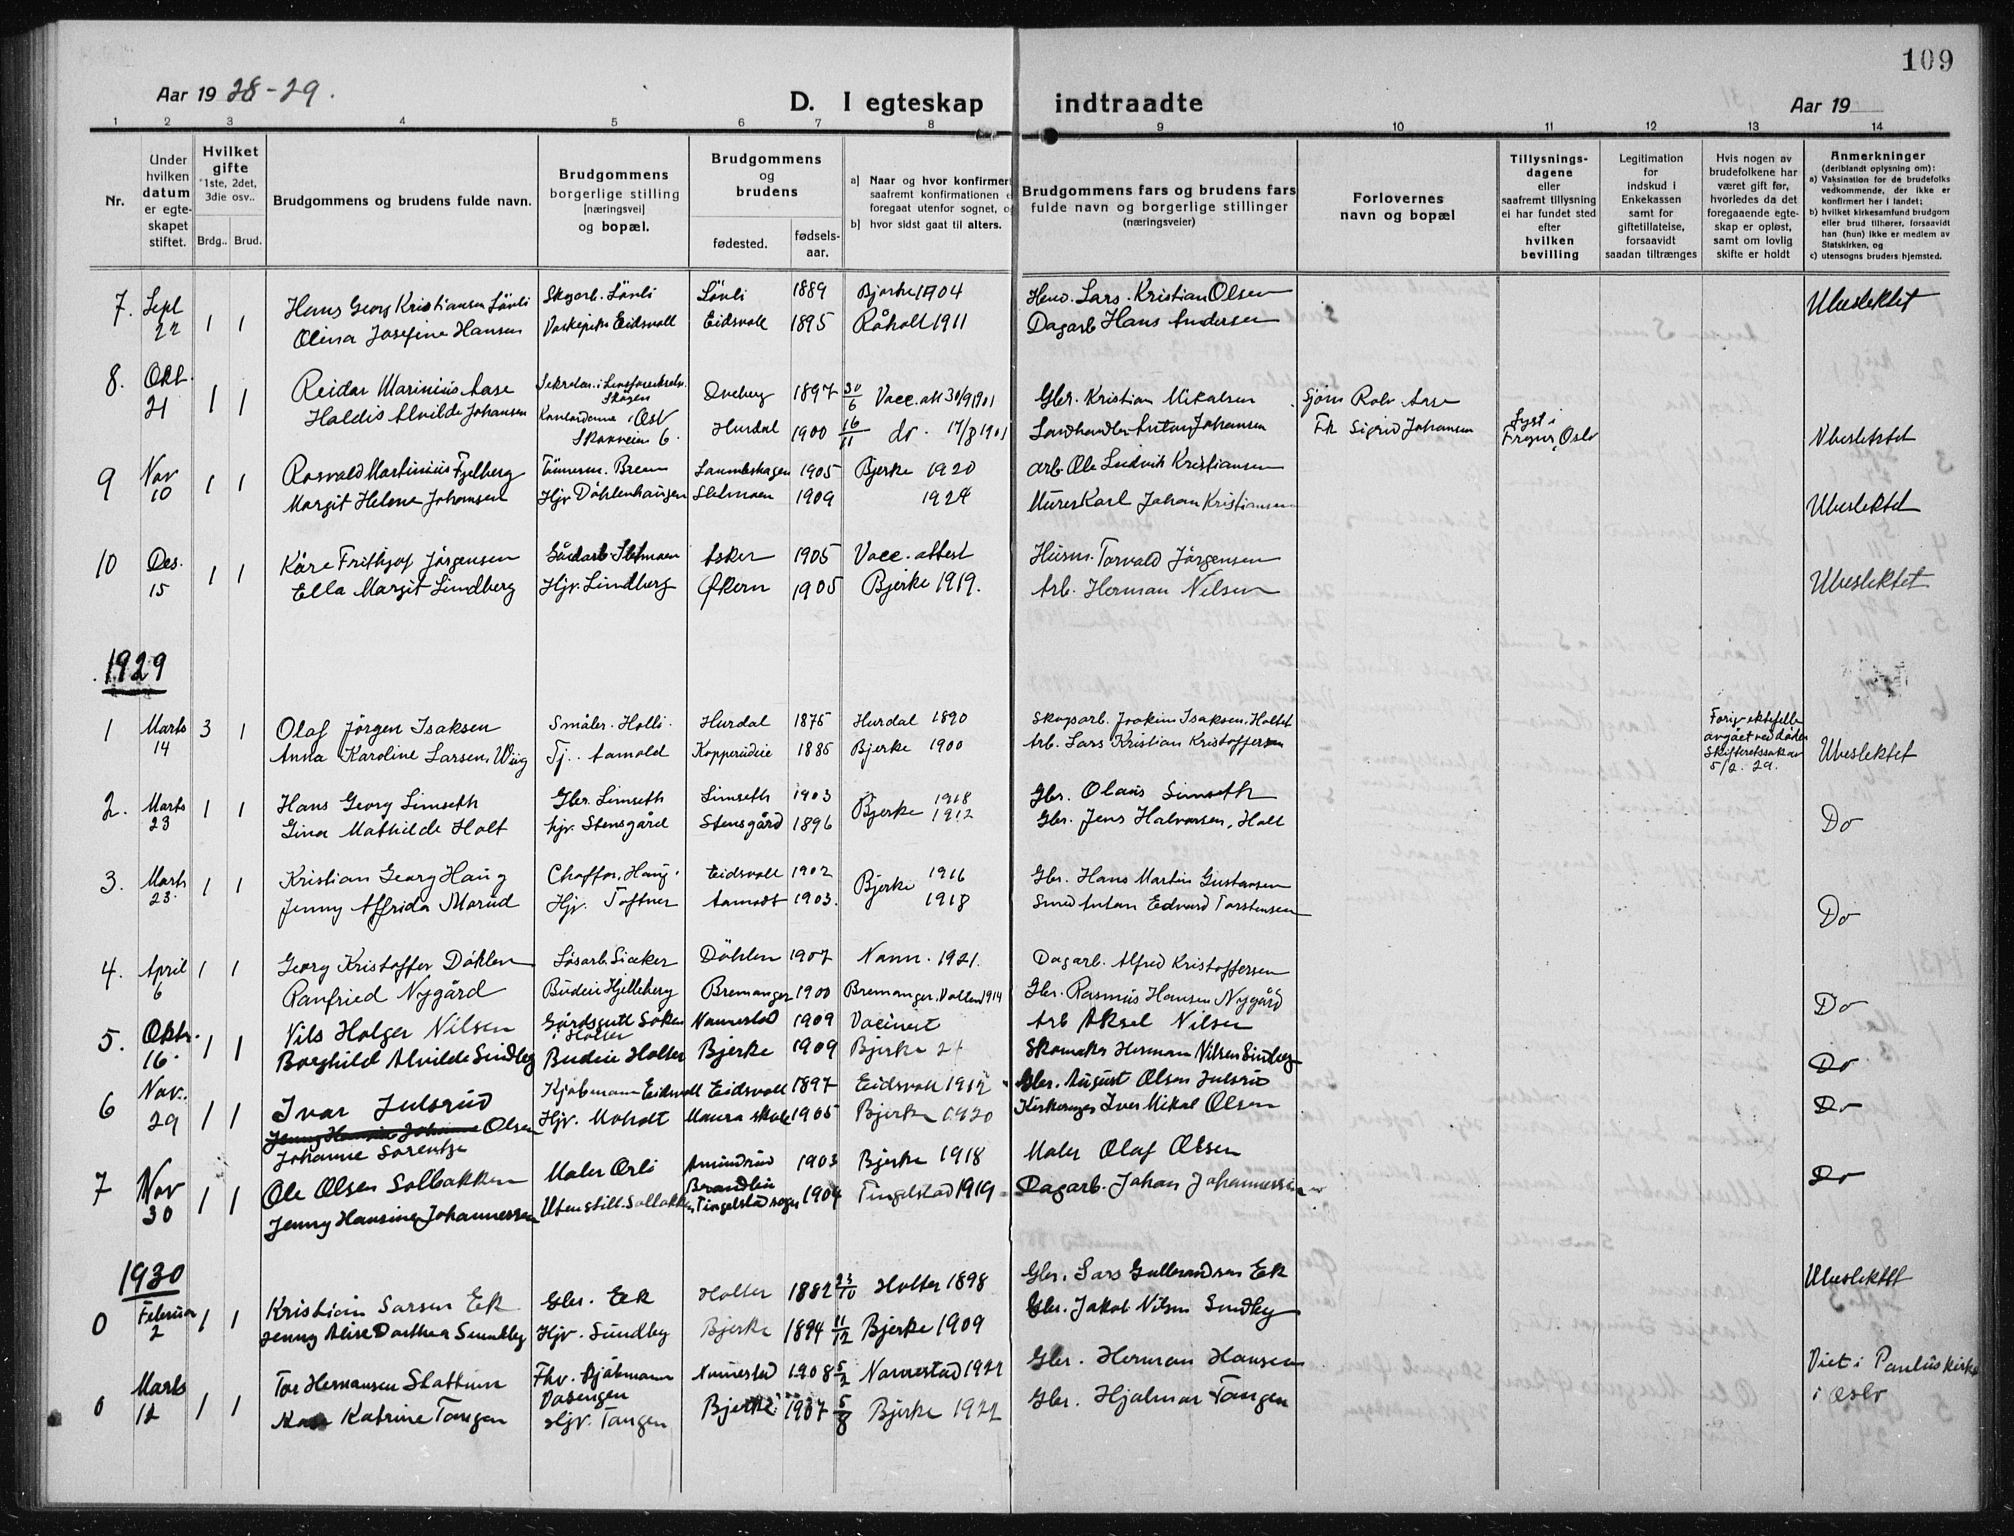 109
Aar 19 28-29.
D. I egteskap indtraadte
Aar 19
1 2 3 4 5 6 7 8 9 10 11 12 13 14
Nr.
Under hvilken datum er egteskapet stiftet.
Hvilket gifte
1ste, 2det, 3die osv..
Brdg.. Brud.
Brudgommens og brudens fulde navn.
Brudgommens borgerlige stilling
[næringsvei]
og bopæl.
Brudgommens og brudens
fødested.
fødsels-aar.
a) Naar og hvor konfirmer
saafremt konfirmationen
foregaat utenfor sognet,
b) hvor sidst gaat til alters.
Brudgommens fars og brudens fars
fulde navn og borgerlige stillinger
(næringsveier)
Forlovernes
navn og bopæl
Tillysnings-
dagene
eller
saafremt tillysning
ei har fundet sted
efter
hvilken
bevilling
Legitimation
for
indskud i
Enkekassen
samt for
giftetillatelse,
forsaavidt
saadan tiltrænges
Hvis nogen av
brudefolkene har
været gift før,
hvorledes da det
foregaaende egte-
skap er opløst,
samt om lovlig
skifte er holdt
Anmerkninger
(deriblandt oplysning om):
a) Vaksination for de brudefolks
vedkommende, der ikke er
konfirmert her i landet;
b) hvilket kirkesamfund brudgom
eller brud tilhører, forsaavidt
han (hun) ikke er medlem av
Statskirken, og
c) utensogns bruders hjemsted.
7. Sept 22 1 1 Hans Georg Kristiansen Lövli Skogarb. Lövli Lövli 1889 Bjerke 1904 Lars Kristian Olsen Ubeslektet
Olina Josefine Hansen Eidsvoll Eidsvoll 1895 Råholt 1911 Dagarb Hans Andersen
8. Okt. 21 1 1 Reidar Marinius Aase 1897 30/6 Vacc. att 30/9 1901 Gbr. Kristian Mikalsen Rolv Aase
Haldis Alvilde Johansen Hurdal 1900 16/11 do. 17/8 1901 Landhandler Anton Johansen Fr Sigrid Johansen Lyst i Frogner, Oslo Ubeslektet
9 Nov 10 1 1 Rosvald Martinius Fjelberg 1905 Bjerke 1920 Arb. Ole Ludvik Kristiansen
Margit Helene Johansen Hjv Döhlenhaugen Sletmoen 1909 1924 Murer Karl Johan Kristiansen Ubeslektet
10 Des. 15 1 1 Kåre Frithjof Jörgensen Gårdarb. Sletmoen Asker 1905 Vacc. attest Husm. Torvald Jörgensen
Ella Margit Lindberg Hjv. Lindberg Økern 1905 Bjerke 1919. Arb. Herman Nilsen Ubeslektet
1929
1 Marts 14 3 1 Olaf Jörgen Isaksen Småbr. Holli. Hurdal 1875 Hurdal 1890 Skogsarb. Joakim Isaksen, Holtet Forig. ektefelle avgået ved døden Skifteretssak av 5/2. 29.
Anna Karoline Larsen, Wiig Tj. Aamold Kopperudeie 1885 Bjerke 1900 Arb. Lars Kristian Kristoffersen Ubeslektet
2. Marts 23 1 1 Hans Georg Limseth Gbr. Limseth Limseth 1903 Bjerke 1918 Gbr. Olaus Limseth
Gina Mathilde Holt hjv. Stensgård Stensgård 1896 1912 Gbr. Jens Halvorsen, Holt Do
3. Marts 23. 1 1 Kristian Georg Haug Chaffor, Haug. Eidsvoll 1902 Bjerke 1916 Gbr. Hans Martin Gustavsen
Jenny Alfrida Morud Hjv. Toftner Aamodt 1903. 1918 Smed Anton Edvard Torstensen Do
4. April 6 1 1 Georg Kristoffer Döhlen Lösarb. Siaker Döhlen 1907 Nann. 1921. Dagarb. Alfred Kristoffersen
Ranfried Nygård Budeie Hjelleberg Bremanger 1900 Bremanger, 1914 Gbr. Rasmus Hansen Nygård Do
5. Oktr. 16. 1 1 Nils Holger Nilsen Gårdsgutt Holter Nannestad 1909 Vacinert Arb Aksel Nilsen
Borghild Alvilde Sindbg Budeie Holter Bjerke 1909 Bjerke 24 Skomaker Herman Nilsen Sindbg Do
6 Nov. 29 1 1 Ivar Julsrud Kjöbmann Eidsvoll Eidsvoll 1897 Eidsvoll 1912 Gbr. August Olsen Julsrud
Olsen Hjv. Moholt Maura skole 1905 Bjerke 1920 Kirkesanger Iver Mikal Olsen Do
Johanne Sorentze
7 Nov 30 1 1 Ole Olsen Solbakken Maler Orli Amundrud 1903 Bjerke 1918 Maler Olaf Olsen Do
Jenny Hansine Johannessen Solbakken Brandbu Tingelstad sogn 1904 Tingelstad 1919 Dagarb. Johan Johannessen
1930
0 Februar 2 1 1 Kristian Larsen Eek Gbr. Eek Holter 1882 23/10 Holter 1898 Gbr. Lars Gulbrandsen Eek Ubeslektet
Jenny Alise Dorthea Sundby Hjv. Sundby Bjerke 1894 11/12 Bjerke 1909 Gbr. Jakob Nilsen Sundby
0 Marts 12 1 1 Tor Hermansen Slattum Fhv. Kjöbmann Vasengen Nannestad 1908 5/2 Nannestad 1922 Gbr. Herman Hansen Viet i Pauluskirke i Oslo
Katrine Tangen Hjv. Tangen Bjerke 1907 5/8 Bjerke 1922 Gbr. Hjalmar Tangen